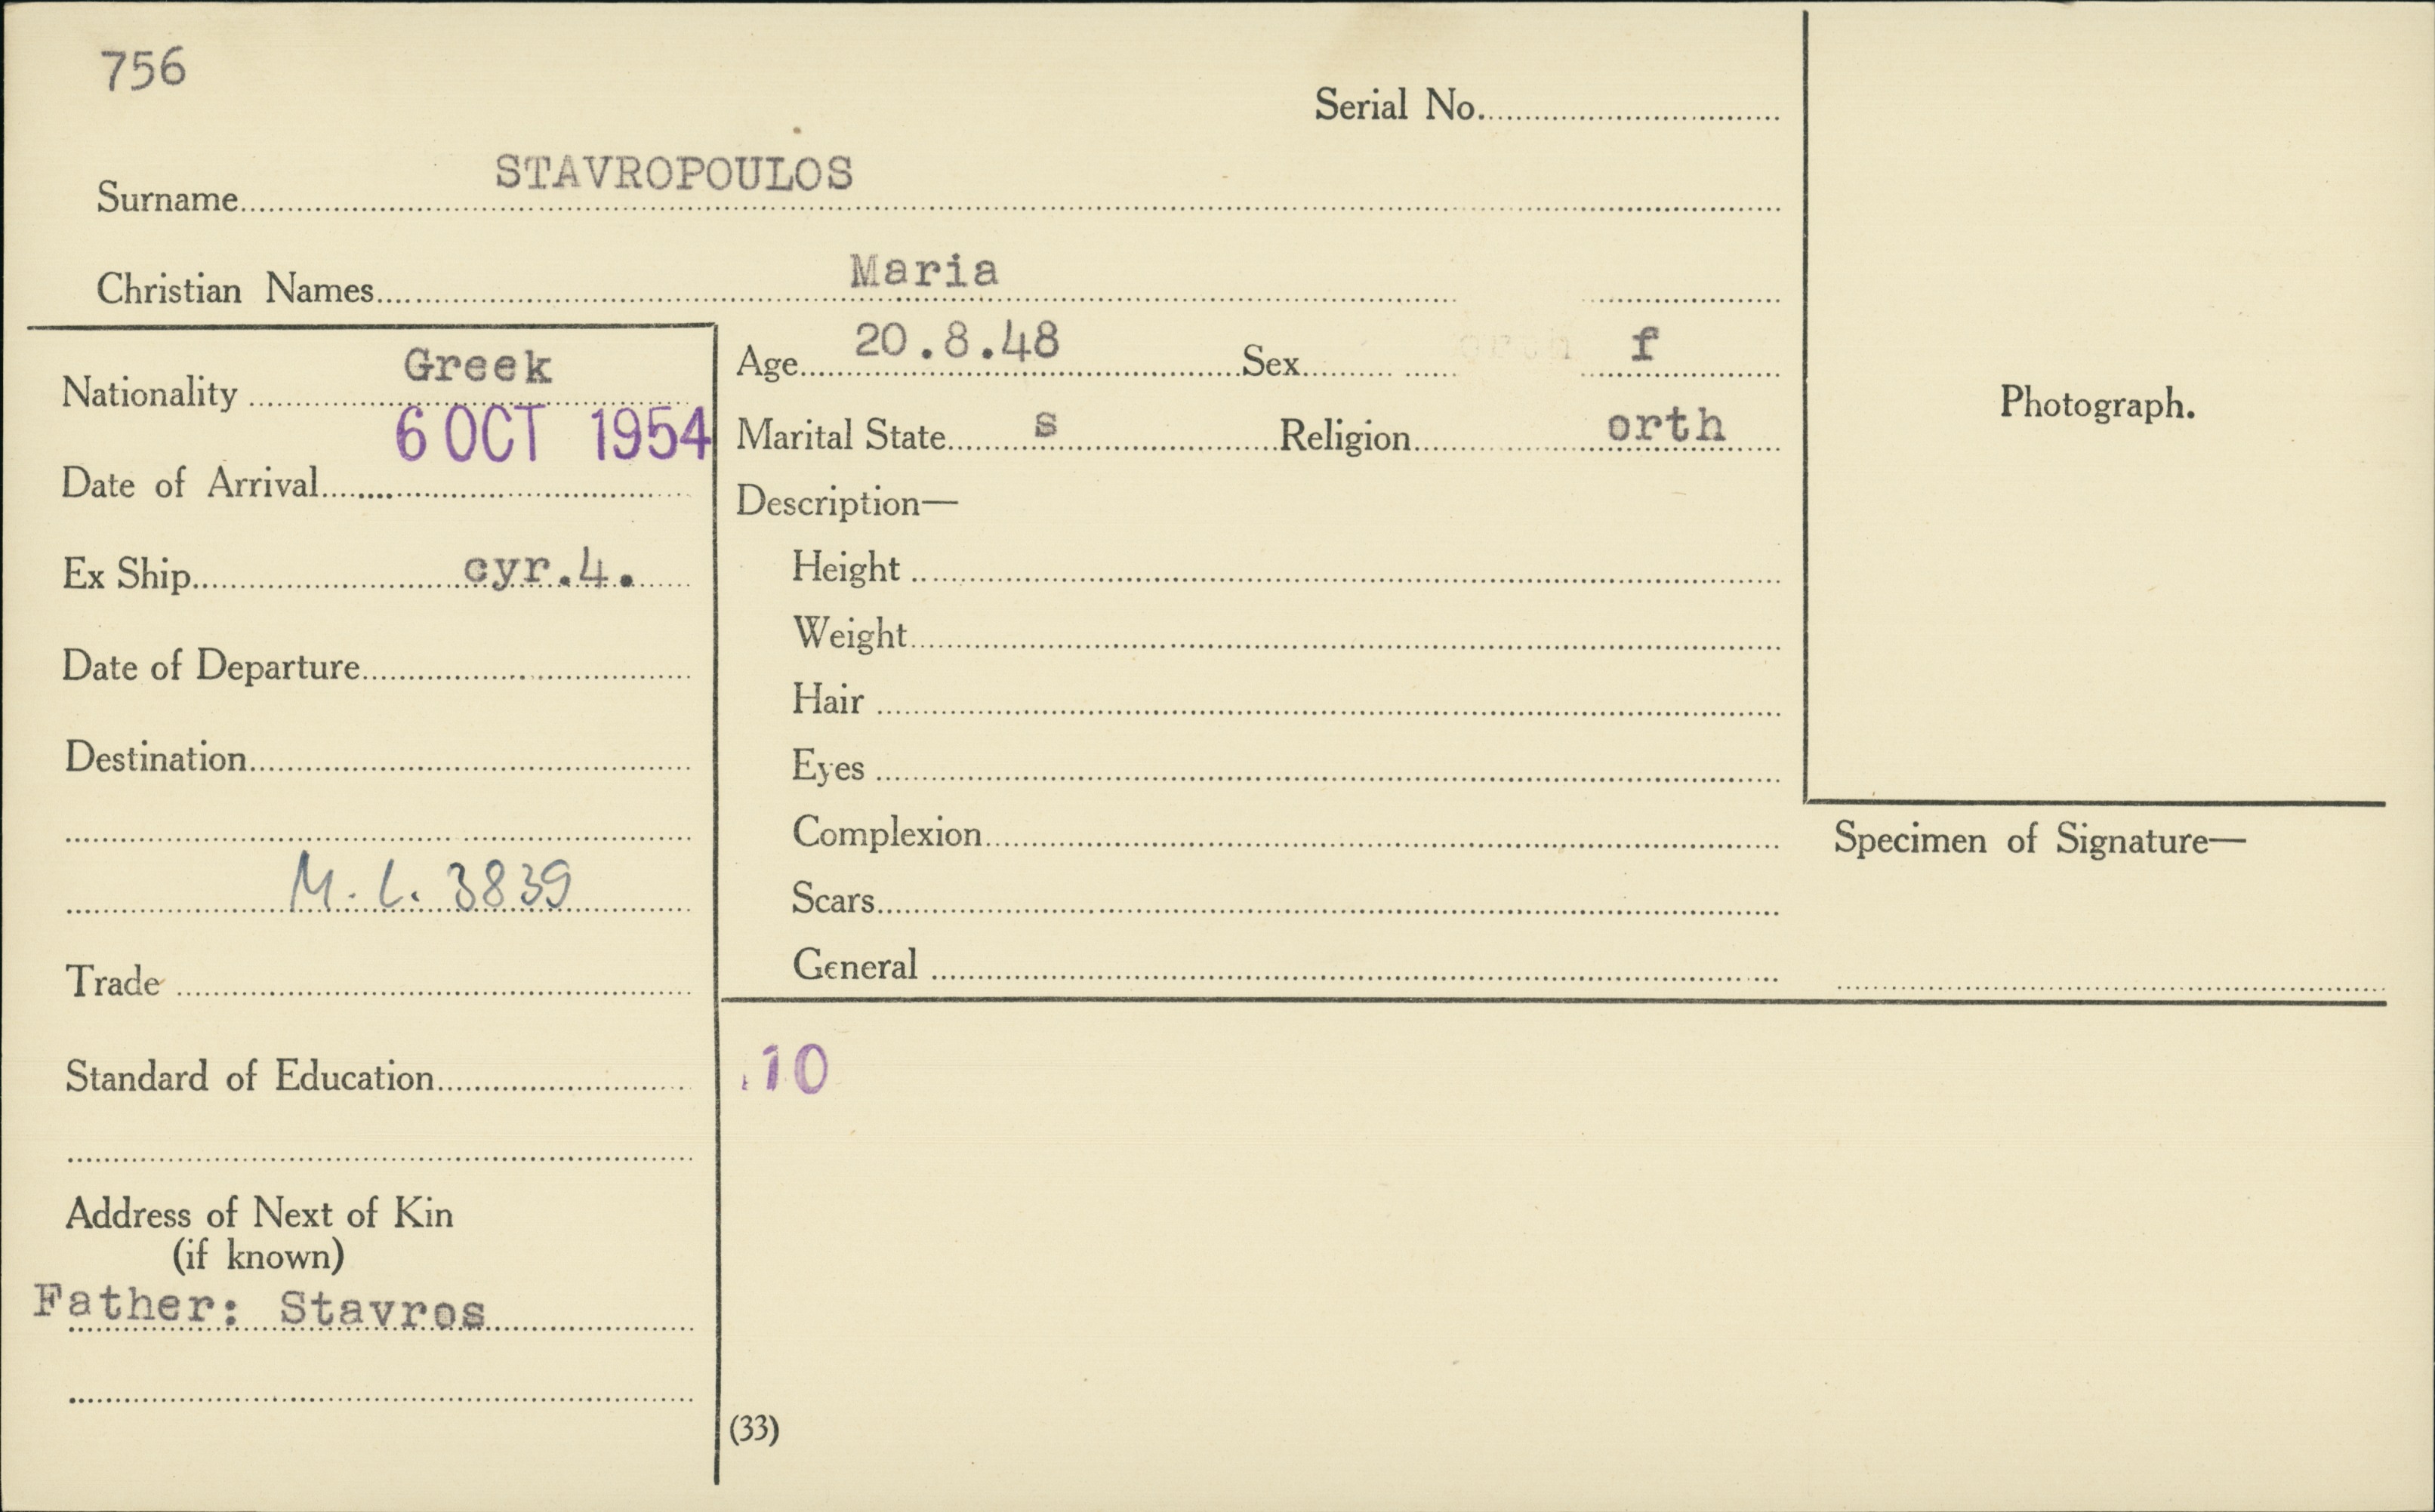 756
Serial No.
Surname STAVROPOULOS
Christian Names Maria
Nationality Greek
Date of Arrival 6 OCT 1954
Ex Ship cyr.4.
Date of Departure
Destination
M. L. 3839
Trade
Standard of Education
Address of Next of Kin
(if known)
Father: Stavros
Age 20.8.48 Sex orth f
Marital State s Religion orth
Description—
Height
Weight
Hair
Eyes
Complexion
Scars
General
10
(33)
Photograph.
Specimen of Signature—